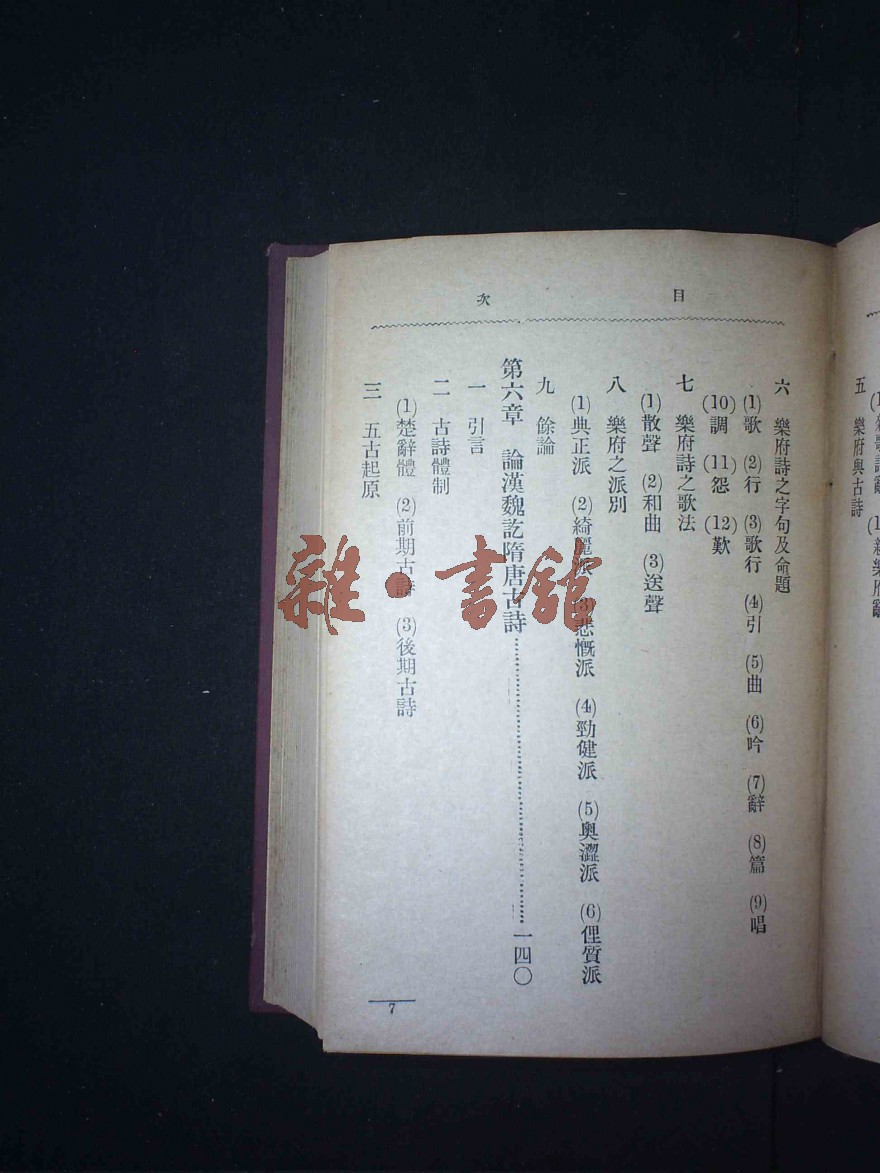 五　樂府與古詩
目次
六　樂府詩之字句及命題
(1)歌　(2)行　(3)歌行　(4)引　(5)曲　(6)吟　(7)辭　(8)篇　(9)唱
(10)調　(11)怨　(12)歎
七　樂府詩之歌法
(1)散聲　(2)和曲　(3)送聲
八　樂府之派別
(1)典正派　(2)綺麗派　(3)悲慨派　(4)勁健派　(5)奧澀派　(6)俚質派
九　餘論
第六章　論漢魏訖隋唐古詩……一四〇
一　引言
二　古詩體制
(1)楚辭體　(2)前期古詩　(3)後期古詩
三　五古起原
7
雜·書館